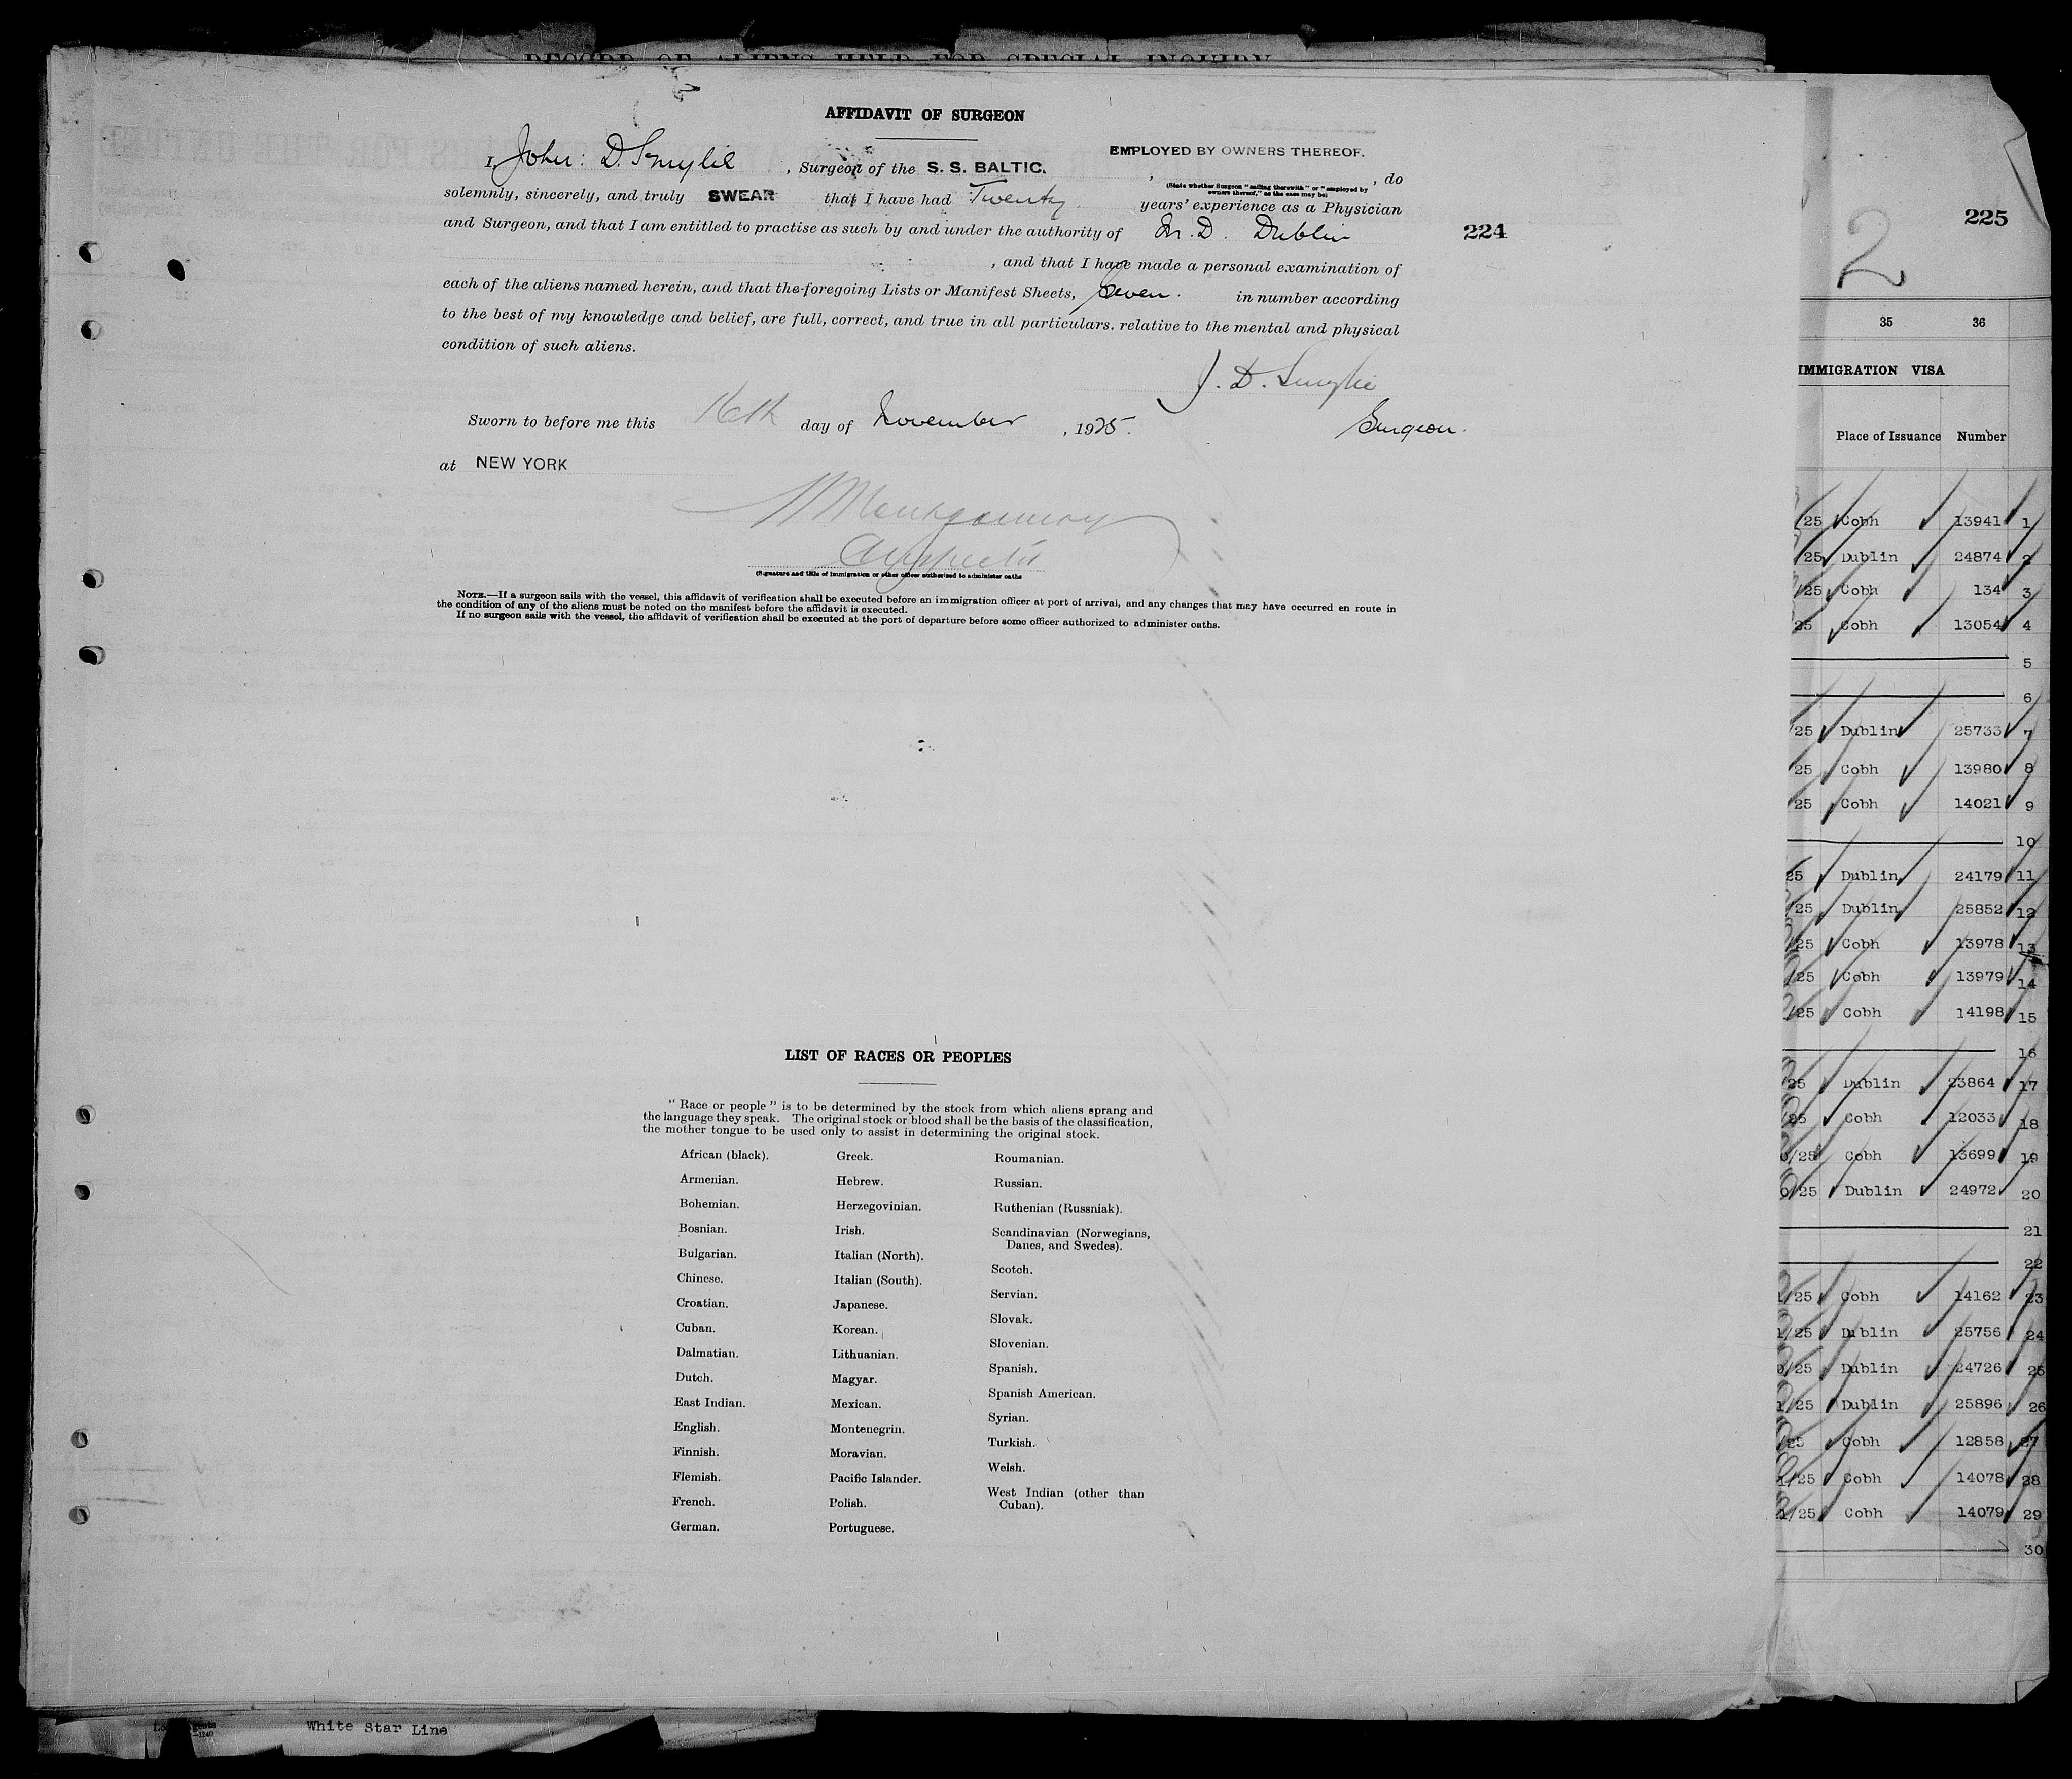 RECORD OF ALIENS HELD FOR SPECIAL INQUIRY
AFFIDAVIT OF SURGEON
I, John: D. Smylie , Surgeon of the S. S. BALTIC. EMPLOYED BY OWNERS THEREOF. , do
(State whether Surgeon "sailing therewith" or "employed by
owners thereof," as the case may be)
solemnly, sincerely, and truly SWEAR that I have had Twenty years' experience as a Physician
and Surgeon, and that I am entitled to practise as such by and under the authority of M.D. Dublin
, and that I have made a personal examination of
each of the aliens named herein, and that the foregoing Lists or Manifest Sheets, Seven. in number according
to the best of my knowledge and belief, are full, correct, and true in all particulars. relative to the mental and physical
condition of such aliens.
J. D. Smylie
Surgeon.
Sworn to before me this 16th day of November , 1925.
at NEW YORK
Montgomery
(Signature and title of immigration or other officer authorized to administer oaths
NOTE.—If a surgeon sails with the vessel, this affidavit of verification shall be executed before an immigration officer at port of arrival, and any changes that may have occurred en route in
the condition of any of the aliens must be noted on the manifest before the affidavit is executed.
If no surgeon sails with the vessel, the affidavit of verification shall be executed at the port of departure before some officer authorized to administer oaths.
224
LIST OF RACES OR PEOPLES
"Race or people" is to be determined by the stock from which aliens sprang and
the language they speak. The original stock or blood shall be the basis of the classification,
the mother tongue to be used only to assist in determining the original stock.
African (black).
Armenian.
Bohemian.
Bosnian.
Bulgarian.
Chinese.
Croatian.
Cuban.
Dalmatian.
Dutch.
East Indian.
English.
Finnish.
Flemish.
French.
German.
Greek.
Hebrew.
Herzegovinian.
Irish.
Italian (North).
Italian (South).
Japanese.
Korean.
Lithuanian.
Magyar.
Mexican.
Montenegrin.
Moravian.
Pacific Islander.
Polish.
Portuguese.
Roumanian.
Russian.
Ruthenian (Russniak).
Scandinavian (Norwegians,
Danes, and Swedes).
Scotch.
Servian.
Slovak.
Slovenian.
Spanish.
Spanish American.
Syrian.
Turkish.
Welsh.
West Indian (other than
Cuban).
White Star Line
2
225
35 36
IMMIGRATION VISA
Place of Issuance Number
/25 Cobh 13941 1
/25 Dublin 24874 2
/25 Cobh 134 3
25 Cobh 13054 4
5
6
/25 Dublin 25733 7
/25 Cobh 13980 8
/25 Cobh 14021 9
10
25 Dublin 24179 11
/25 Dublin 25852 12
/25 Cobh 13978 13
/25 Cobh 13979 14
/25 Cobh 14198 15
16
/25 Dublin 23864 17
/25 Cobh 12033 18
0/25 Cobh 13699 19
0/25 Dublin 24972 20
21
22
1/25 Cobh 14162 23
1/25 Dublin 25756 24
0/25 Dublin 24726 25
1/25 Dublin 25896 26
25 Cobh 12858 27
1/25 Cobh 14078 28
1/25 Cobh 14079 29
30